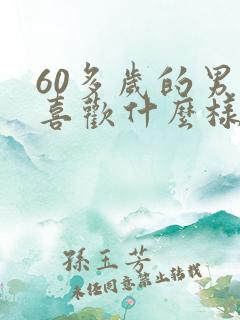 60多歲的男
喜歡什麼樣
孫玉芳
未經同意禁止轉載